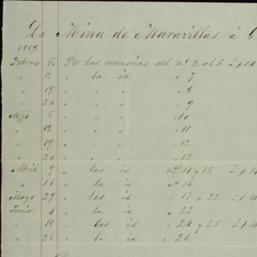 La Mina de Maravillas á G
1859
Febrero 5 Por las memorias del nº 2 al 6 á p
" 12 " la id " 7
" 19 " " 8
" 26 " " 9
Mzo 5 " " 10
" 12 " " 11
" 19 " " 12
" 26 " " 13
Abril 9 " las id nos 14 y 15 á p
" 16 " la id nº 16
Mayo 29 " las id " 17 á 22 á p
Junio 4 " la id " 23
" 18 " las id " 24 y 25 á p
" 25 " la id " 26